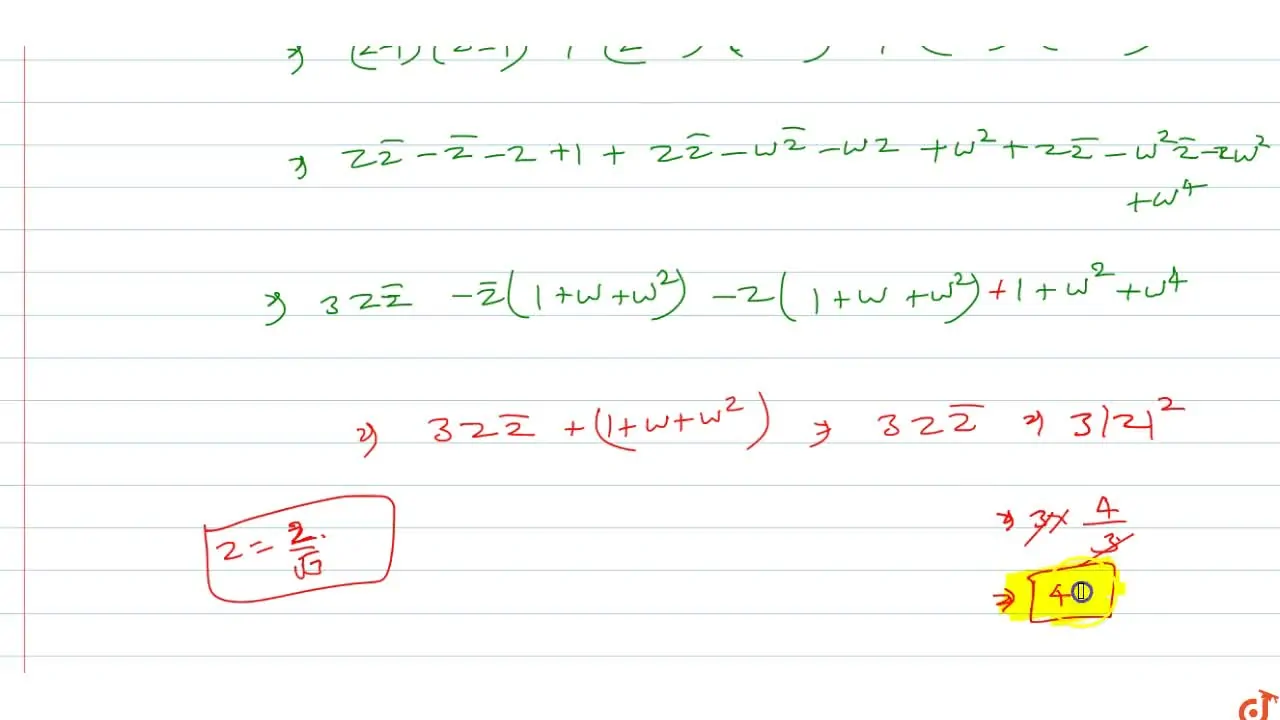 ⇒ 2z̄ - z̄ - 2 + 1 + 2z̄ - wz̄ - wz + w² + 2z̄ - w²z̄ - zw²
+ w⁴
⇒ 3zz̄ - z̄(1+w+w²) - z(1+w+w²) + 1 + w² + w⁴
⇒ 3zz̄ + (1+w+w²) ⇒ 3zz̄ ⇒ 3|z|²
⇒ 3 × 4/3
z = 2/√3
⇒ 4